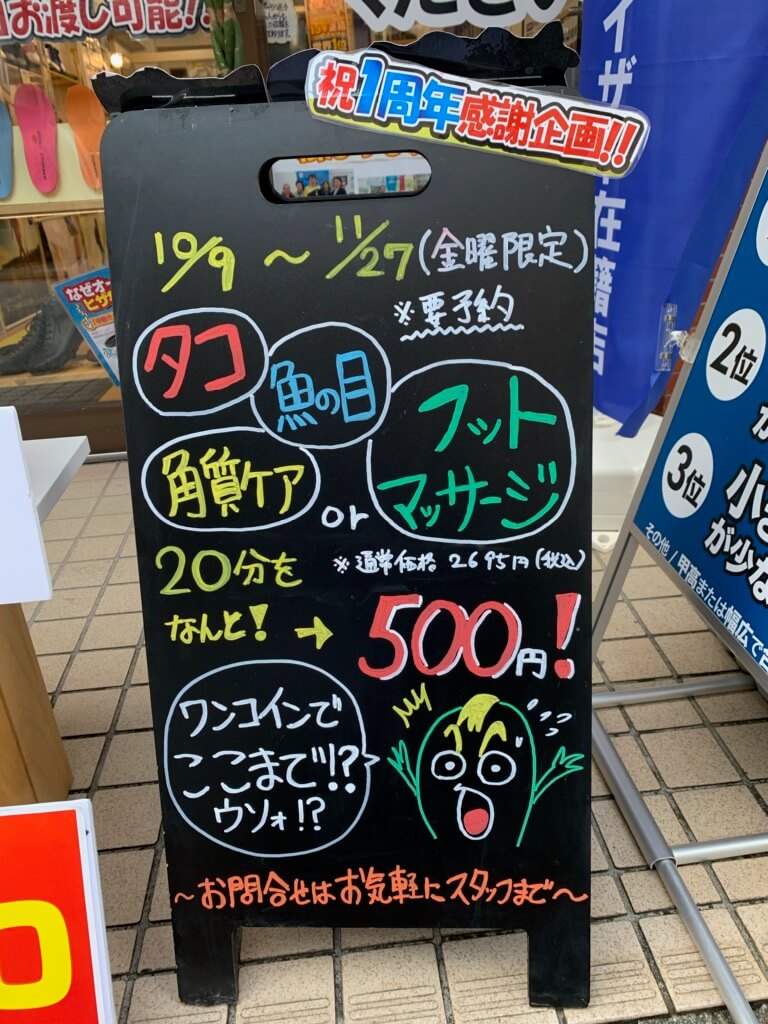 お渡し可能!!
祝1周年感謝企画!!
10/9 ～ 11/27(金曜限定)
※要予約
タコ
魚の目
角質ケア
or
フット
マッサージ
20分を
※通常価格 2695円(税込)
なんと! → 500円!
ワンコインで
ここまで!?
ウソォ!?
～お問合せはお気軽にスタッフまで～
在籍店
2位
3位
小さ
が少な
その他 / 甲高または幅広で